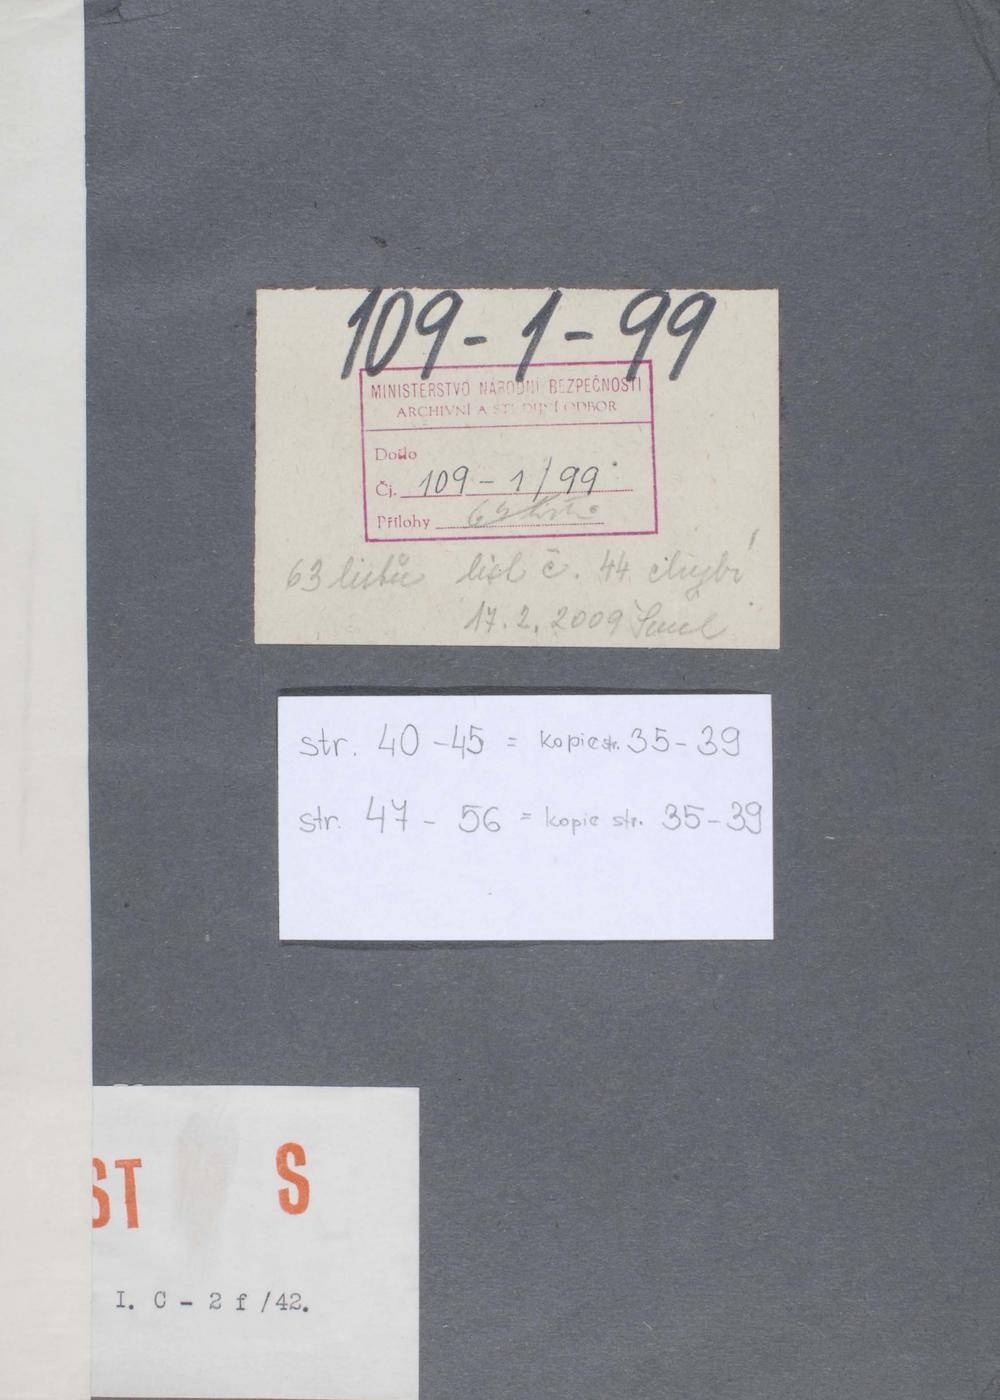 109-1-99
MINISTERSTVO NÁRODNÍ BEZPEČNOSTI
ARCHIVNÍ A STUDIJNÍ ODBOR
Došlo
Čj. 109-1/99
Přílohy
63 listů list č. 44 chybí
17.2.2009
str. 40-45 = kopie str. 35-39
str. 47-56 = kopie str. 35-39
ST S
I. C - 2 f /42.